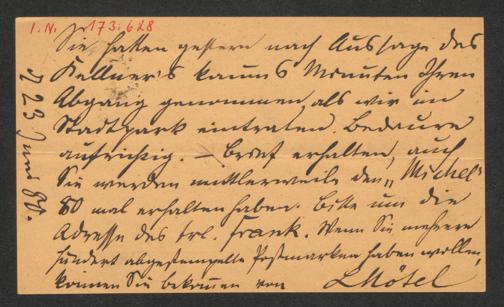 I. N. 173.628
Sie hatten gestern nach Aussage des
Kellners kaum 5 Minuten Ihren
Abgang genommen, als wir im
Stadtpark eintraten. Bedaure
aufrichtig. — Brief erhalten, auch
Sie werden mittlerweile den "Michel"
80 mal erhalten haben. Bitte um die
Adresse des Frl. Frank. Wenn Sie mehrere
hundert abgestempelte Postmarken haben wollen,
können Sie bekommen von
23 Juni 84.